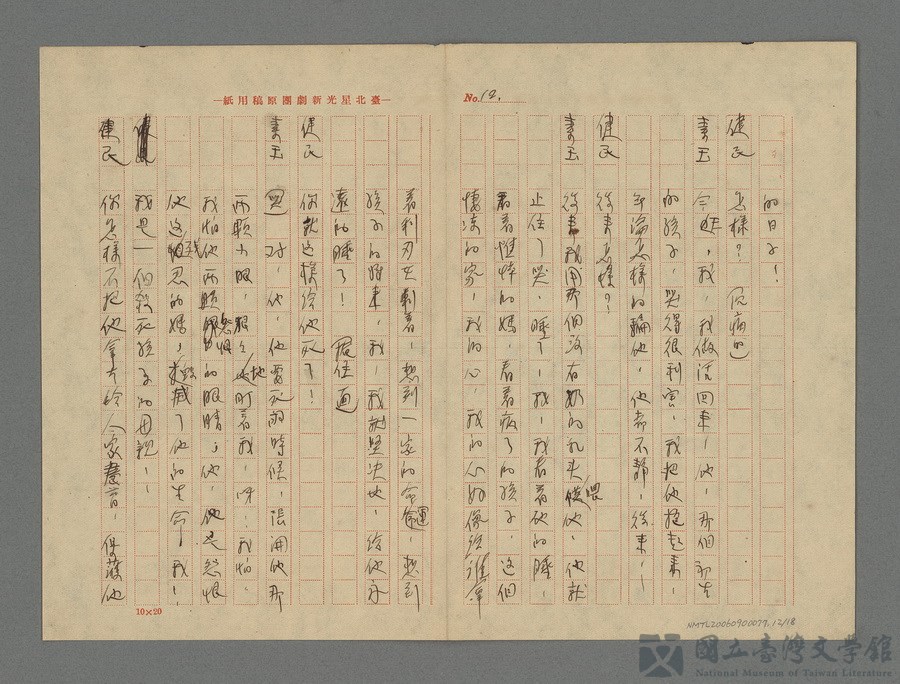 No. 12.
的日子！
健民　怎樣？（沉痛的）
素玉　今天，我，我做活回來，他，那個初生
的孩子，哭得很利害，我把他抱起來，
無論怎樣的騙他，他都不靜，後來，—
健民　後來怎樣？
素玉　後來我用那個沒有奶的乳头餵他，他就
止住了哭，睡了，我，我看着他的睡，
看着憔悴的媽，看着病了的孩子，這個
悽涼的家，我的心，我的心好像給誰拿
着利刃在刺着，想到一家的命運，想到
孩子的將來，我，我就堅決地，給他永
遠的睡了！
健民　你就这樣給他死了！
素玉　对，他，他要死的時候，張開他那
两顆小眼，狠狠地盯着我，呀，我怕，
我怕他两顆怨恨的眼睛，他，他是怨恨
他这殘忍的媽，毀滅了他的生命，我！，
我是一個殺死孩子的母親，—
健民　你怎樣不把他拿去給人家養育，保護他
—臺北星光新劇團原稿用紙—
10×20
NMTL20060900077, 12/18
國立臺灣文學館
National Museum of Taiwan Literature